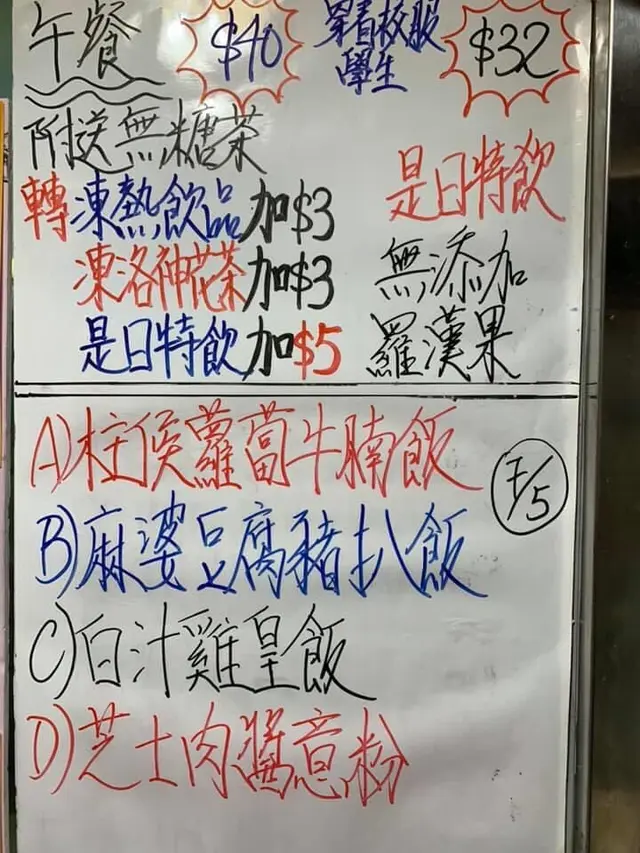 午餐 $40 穿着校服 學生 $32
附送無糖茶
轉凍熱飲品加$3
凍洛神花茶加$3
是日特飲加$5
是日特飲
無添加
羅漢果
A)柱侯蘿蔔牛腩飯
B)麻婆豆腐豬扒飯
C)白汁雞皇飯
D)芝士肉醬意粉